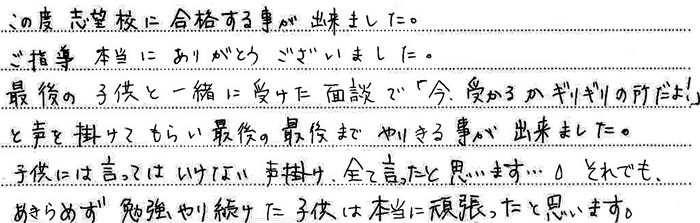 この度 志望校に合格する事が出来ました。
ご指導 本当にありがとうございました。
最後の 子供と一緒に受けた面談で「今、受かるかギリギリの所だよ!」
と声を掛けてもらい最後の最後までやりきる事が出来ました。
子供には言ってはいけない声掛け、全て言ったと思います…。それでも、
あきらめず勉強やり続けた子供は本当に頑張ったと思います。